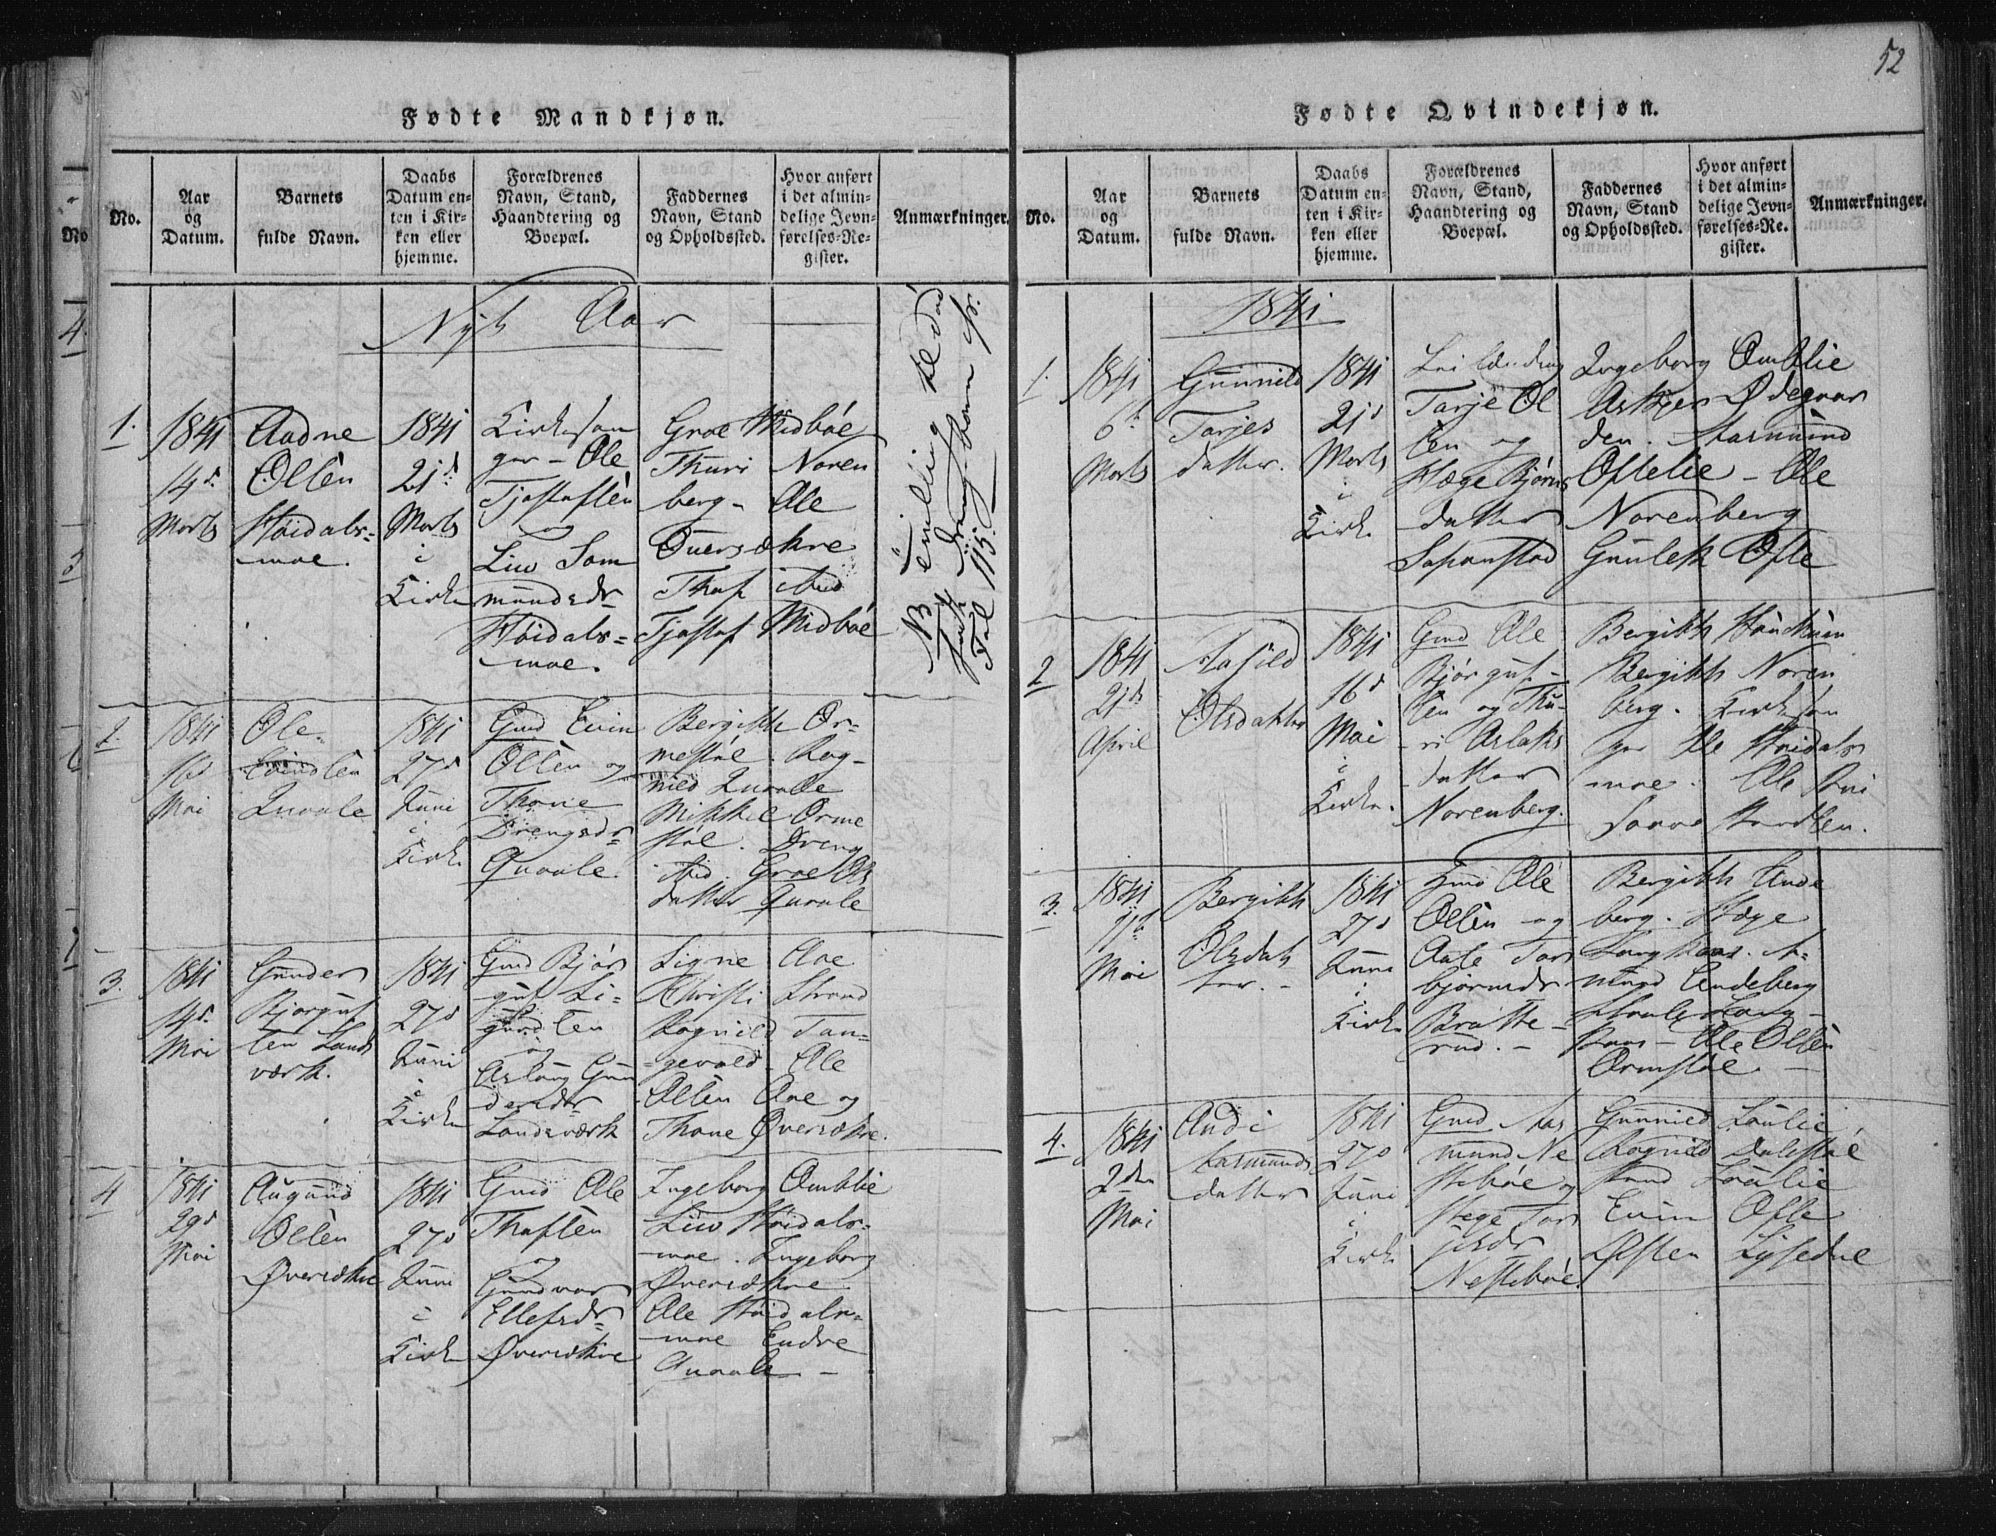 52
Fødte Mandkjøn.
No.
Aar
og
Datum.
Barnets
fulde Navn.
Daabs
Datum en-
ten i Kir-
ken eller
hjemme.
Forældrenes
Navn, Stand,
Haandtering og
Boepæl.
Faddernes
Navn, Stand
og Opholdssted.
Hvor anført
i det almin-
delige Jevn-
førelses-Re-
gister.
Anmærkninger.
Nyt Aar
1.
1841
14d
Marts
Aadne
Olsen
Høidals-
moe.
1841
21d
Marts
i
Kirke
Kirkesan
ger - Ole
Tjostofsen
og
Liv Som
mundsdr
Høidals-
moe.
Groe Midbøe
Thuri Noren
berg - Ole
Oversækre
Thof
Tjostof Midbøe
Fol 115.
2.
1841
16d
Mai
Ole
Eivindsen
Qvaale
1841
27d
Juni
i
Kirke
Gmd Evin
Olsen og
Thone
Drengsdr
Qvaale.
Bergith Or-
mestøl. Rag-
nild Qvaale
Mikkel Orme
støl. Dreng
ibid. Groe Ols
datter Qvaale
3.
1841
14d
Mai
Gunder
Bjorguf
sen Lands
værk.
1841
27d
Juni
i
Kirke
Gmd Bjør
guf Si-
gurdsen
og
Aslaug Gun
dersdr
Landsværk
Signe Aae
Christi Strand
Ragnild Tan-
gevald - Ole
Olsen Aae og
Thone Øversækre.
4
1841
29d
Mai
Augund
Olsen
Øversækre
1841
27d
Juni
i
Kirke
Gmd Ole
Thofsen
og
Gundvor
Ellefsdr
Øversækre
Ingeborg Omblie
Liv Høidals-
moe. Ingeborg
Øversækre
Ole Høidals-
moe Endre
Qvaale -
Fødte Qvindekjøn.
No.
Aar
og
Datum.
Barnets
fulde Navn.
Daabs
Datum en-
ten i Kir-
ken eller
hjemme.
Forældrenes
Navn, Stand,
Haandtering og
Boepæl.
Faddernes
Navn, Stand
og Opholdssted.
Hvor anført
i det almin-
delige Jevn-
førelses-Re-
gister.
Anmærkninger.
1841
1.
1841
6d
Marts
Gunnild
Tarjes
datter.
1841
21d
Marts
i
Kirke
Leilænding
Tarje Ol
sen og
Hæge Bjørns
datter
Ingeborg Omblie
Asbjør Ødegaar
den. Aasmund
Oftelie - Ole
Norenberg
Gunleik Ofte
2
1841
21d
April
Aasild
Olsdatter
1841
16d
Mai
i
Kirke.
Gmd Ole
Bjørguf-
sen og Thu-
ri Aslaks
datter
Norenberg.
Bergith
Bergith Noren
berg. Kirkesan
ger Ole Høidals
moe. Ole
3.
1841
Mai
Bergith
Olsdat
ter. -
1841
27d
Juni
i
Kirke
Gmd Ole
Olsen og
Aase Tor
bjørnsdr
Bratte-
rud. -
Bergith Ande
berg. Hæge
mund Andeberg
Ole Olsen
Ormstøl -
4.
1841
2den
Mai
Andi
Aasmunds
datter
1841
27d
Juni
i
Kirke
Gmd Aas
mund Ne
stebøe og
Hege Tor
jesdr
Nestebøe
Gunnild Loulie
Ragnild Dalestøl
Loulie
Evin Ofte